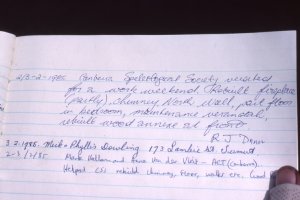 2/3-2-1985 Canberra Speleological Society visited
for a work weekend. Rebuilt fireplace
(partly), chimney, North Wall, part floor
in bedroom, maintenance verandah,
rebuilt wood annexe at front
R J
3.2.1985. Mick & Phyllis Dowling 173 St.
2-3/2/85 Anna Van der - ACT (Canberra).
Helped CSS rebuild chimney, floor, walls etc.